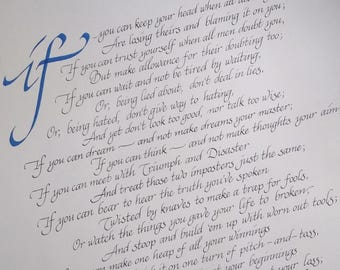 if you can keep your head when all about
Are losing theirs and blaming it on you;
If you can trust yourself when all men doubt you,
But make allowance for their doubting too;
If you can wait and not be tired by waiting,
Or, being lied about, don't deal in lies,
Or, being hated, don't give way to hating,
And yet don't look too good, nor talk too wise;
If you can dream — and not make dreams your master;
If you can think — and not make thoughts your aim
If you can meet with Triumph and Disaster
And treat those two imposters just the same;
If you can bear to hear the truth you've spoken
Twisted by knaves to make a trap for fools,
Or watch the things you gave your life to broken,
And stoop and build 'em up with worn out tools;
make one heap of all your winnings
it on one turn of pitch-and-toss,
at your beginnings
your loss